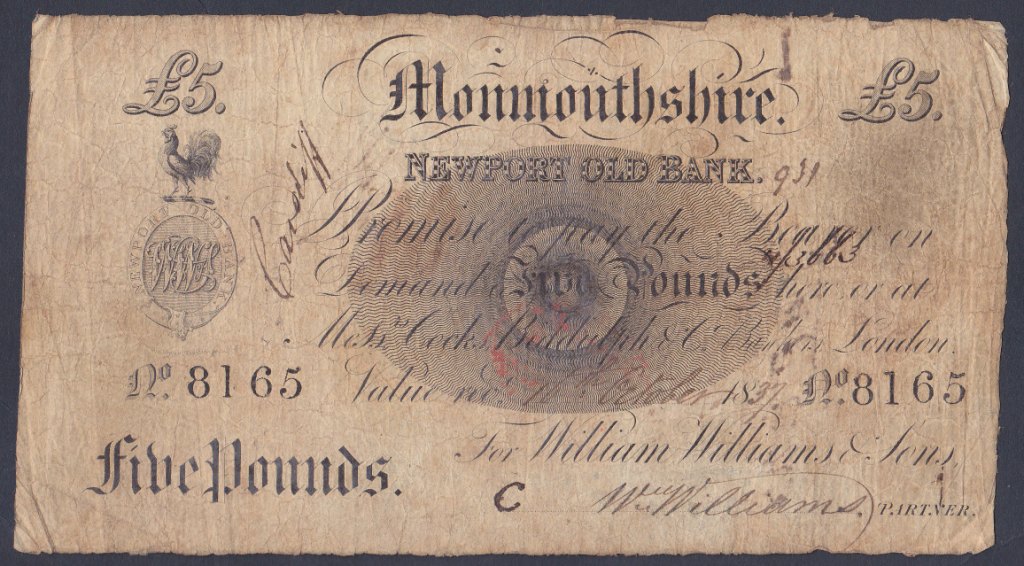 £5. Monmouthshire. £5.
NEWPORT OLD BANK. 931
Cardiff
NEWPORT OLD BANK
I Promise to pay the Bearer on
43663
Demand Five Pounds here or at
Mess.rs Cocks Biddulph & C.o Bankers London.
No. 8165 Value rec.d October 1837 No. 8165
For William Williams & Sons,
Five Pounds.
C Wm Williams. PARTNER.